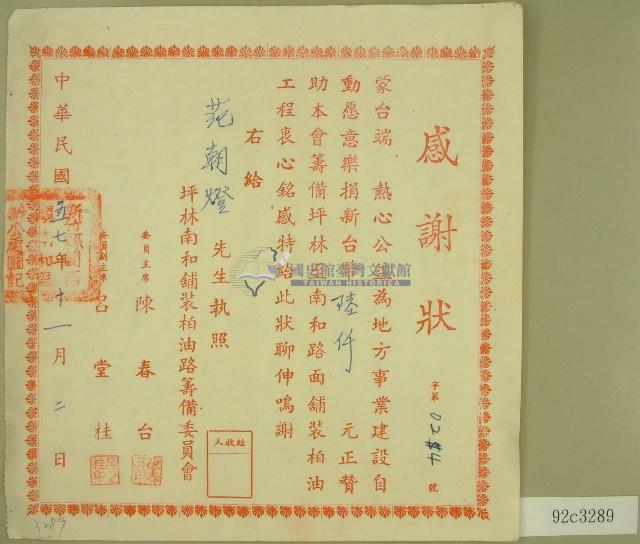 感謝狀
字第 0244 號
蒙台端 熱心公益為地方事業建設自
動愿意樂捐新台幣陸仟 元正贊
助本會籌備坪林至南和路面舖裝柏油
工程衷心銘感特給此狀聊伸鳴謝
右給
范朝燈 先生執照
坪林南和舖裝柏油路籌備委員會
委員主席 陳春台
委員副主席 呂堂桂
經收人
中華民國五七年十一月二日
國史館臺灣文獻館
TAIWAN HISTORICA
92c3289
3289